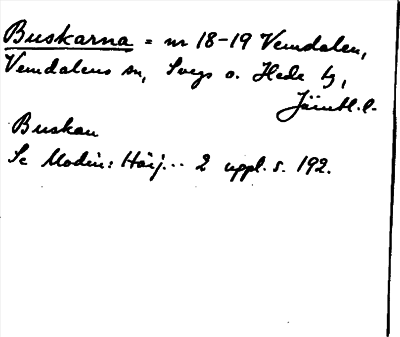 Buskarna = nr 18-19 Vemdalen,
Vemdalens sn, Svegs o. Hede tg,
Jämtl. l.
Buskan
Se Modin: Härj... 2 uppl. s. 192.